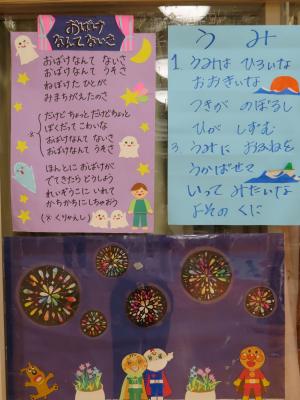 おばけ
なんてないさ
おばけなんて ないさ
おばけなんて うそさ
ねぼけた ひとが
みまちがえたのさ
※ だけど ちょっと だけどちょっと
ぼくだって こわいな
おばけなんて ないさ
おばけなんて うそさ
ほんとに おばけが
でてきたら どうしよう
れいぞうこに いれて
かちかちにしちゃおう
(※ くりかえし)
うみ
1. うみは ひろいな
おおきいな
つきが のぼるし
ひが しずむ
3. うみに おふねを
うかばせて
いって みたいな
よその くに